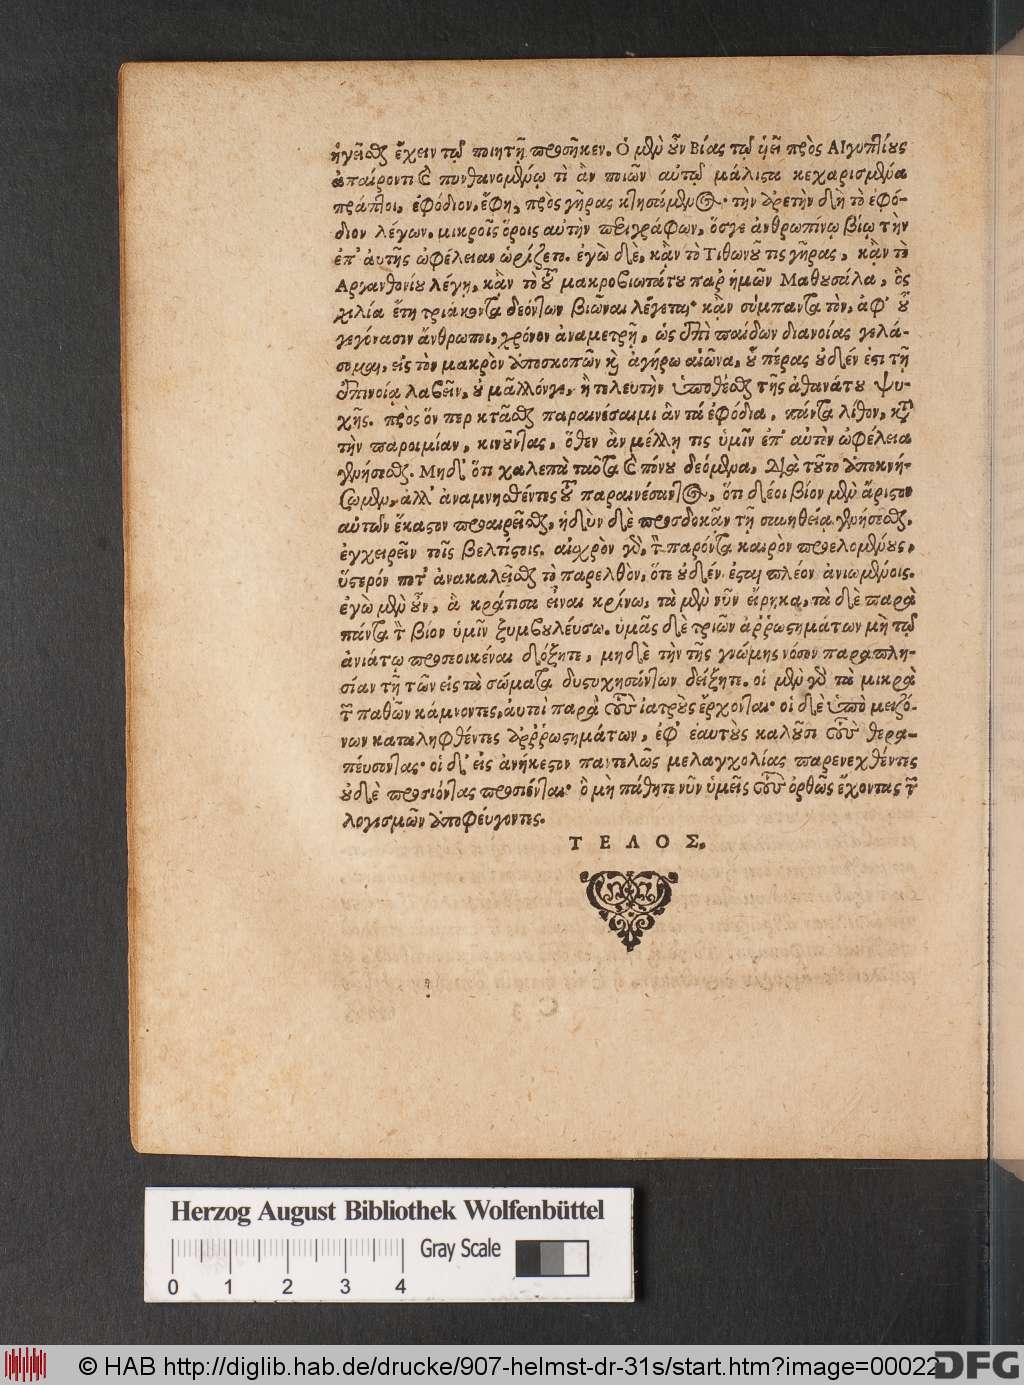 ἡγεῖσθαι ἔχειν τῷ ποιητῇ προσῆκεν. Ὁ μὲν οὖν Βίας τῷ ὑεῖ πρὸς Αἰγυπτίους
ἀπαίροντι καὶ πυνθανομένῳ τὶ ἂν ποιῶν αὐτῷ μάλιστα κεχαρισμένα
πράττοι, ἐφόδιον, ἔφη, πρὸς γῆρας κτησόμενος· τὴν ἀρετὴν δὴ τὸ ἐφό-
διον λέγων, μικροῖς ὅροις αὐτὴν περιγράφων, ὅσγε ἀνθρωπίνῳ βίῳ τὴν
ἐπ' ἀυτῆς ὠφέλειαν ὡρίζετο. ἐγὼ δὲ, κἂν τὸ Τιθωνοῦ τις γῆρας, κἂν τὸ
Αργανθονίου λέγῃ, κἂν τὸ τοῦ μακροβιωτάτου παρ' ἡμῶν Μαθουσάλα, ὃς
χιλία ἔτη τριάκοντα δεόντων βιῶναι λέγεται· κἂν σύμπαντα τὸν, ἀφ' οὗ
γεγόνασιν ἄνθρωποι, χρόνον ἀναμετρῇ, ὡς ἐπὶ παίδων διανοίας γελά-
σομαι, εἰς τὸν μακρὸν ἀποσκοπῶν καὶ ἀγήρω αἰῶνα, οὗ πέρας οὐδέν ἐστι τῇ
ἐπινοίᾳ λαβεῖν, οὐ μᾶλλόν γε, ἢ τελευτὴν ὑποθέσθαι τῆς ἀθανάτου ψυ-
χῆς. πρὸς ὅν περ κτᾶσθαι παραινέσαιμι ἂν τὰ ἐφόδια, πάντα λίθον, κατὰ
τὴν παροιμίαν, κινοῦντας, ὅθεν ἂν μέλλῃ τις ὑμῖν ἐπ' αὐτὸν ὠφέλεια
γενήσεσθαι. Μηδ' ὅτι χαλεπὰ ταῦτα καὶ πόνου δεόμενα, διὰ τοῦτο ἀποκνή-
σωμεν, ἀλλ' ἀναμνησθέντες τοῦ παραινέσαντος, ὅτι δέοι βίον μὲν ἄριστον
αὐτὸν ἕκαστον προαιρεῖσθαι, ἡδὺν δὲ προσδοκᾷν τῇ συνηθείᾳ γενήσεσθαι,
ἐγχειρεῖν τοῖς βελτίστοις. αἰσχρὸν γὰρ, τὸν παρόντα καιρὸν προελομένους,
ὕστερόν ποτ' ἀνακαλεῖσθαι τὸ παρελθὸν, ὅτε οὐδέν ἔσται πλέον ἀνιωμένοις.
ἐγὼ μὲν οὖν, ἃ κράτιστα εἶναι κρίνω, τὰ μὲν νῦν εἴρηκα, τὰ δὲ παρὰ
πάντα τὸν βίον ὑμῖν ξυμβουλεύσω. ὑμᾶς δὲ τριῶν ἀῤῥωστημάτων μὴ τῷ
ἀνιάτῳ προσεοικέναι δόξητε, μηδὲ τὴν τῆς γνώμης νόσον παραπλη-
σίαν τῇ τῶν εἰς τὰ σώματα δυστυχησάντων δείξητε. οἱ μὲν γὰρ τὰ μικρὰ
τῶν παθῶν κάμνοντες, ἀυτοὶ παρὰ τοὺς ἰατροὺς ἔρχονται· οἱ δὲ ὑπὸ μειζό-
νων καταληφθέντες ἀῤῥωστημάτων, ἐφ' ἑαυτοὺς καλοῦσι τοὺς θερα-
πέυσοντας· οἱ δ' εἰς ἀνήκεστον παντελῶς μελαγχολίας παρενεχθέντες
οὐδὲ προσιόντας προσίενται· ὃ μὴ πάθητε νῦν ὑμεῖς τοὺς ὀρθῶς ἔχοντας τῶν
λογισμῶν ἀποφέυγοντες.
ΤΕΛΟΣ.
Herzog August Bibliothek Wolfenbüttel
Gray Scale
0 1 2 3 4
© HAB http://diglib.hab.de/drucke/907-helmst-dr-31s/start.htm?image=00022
DFG